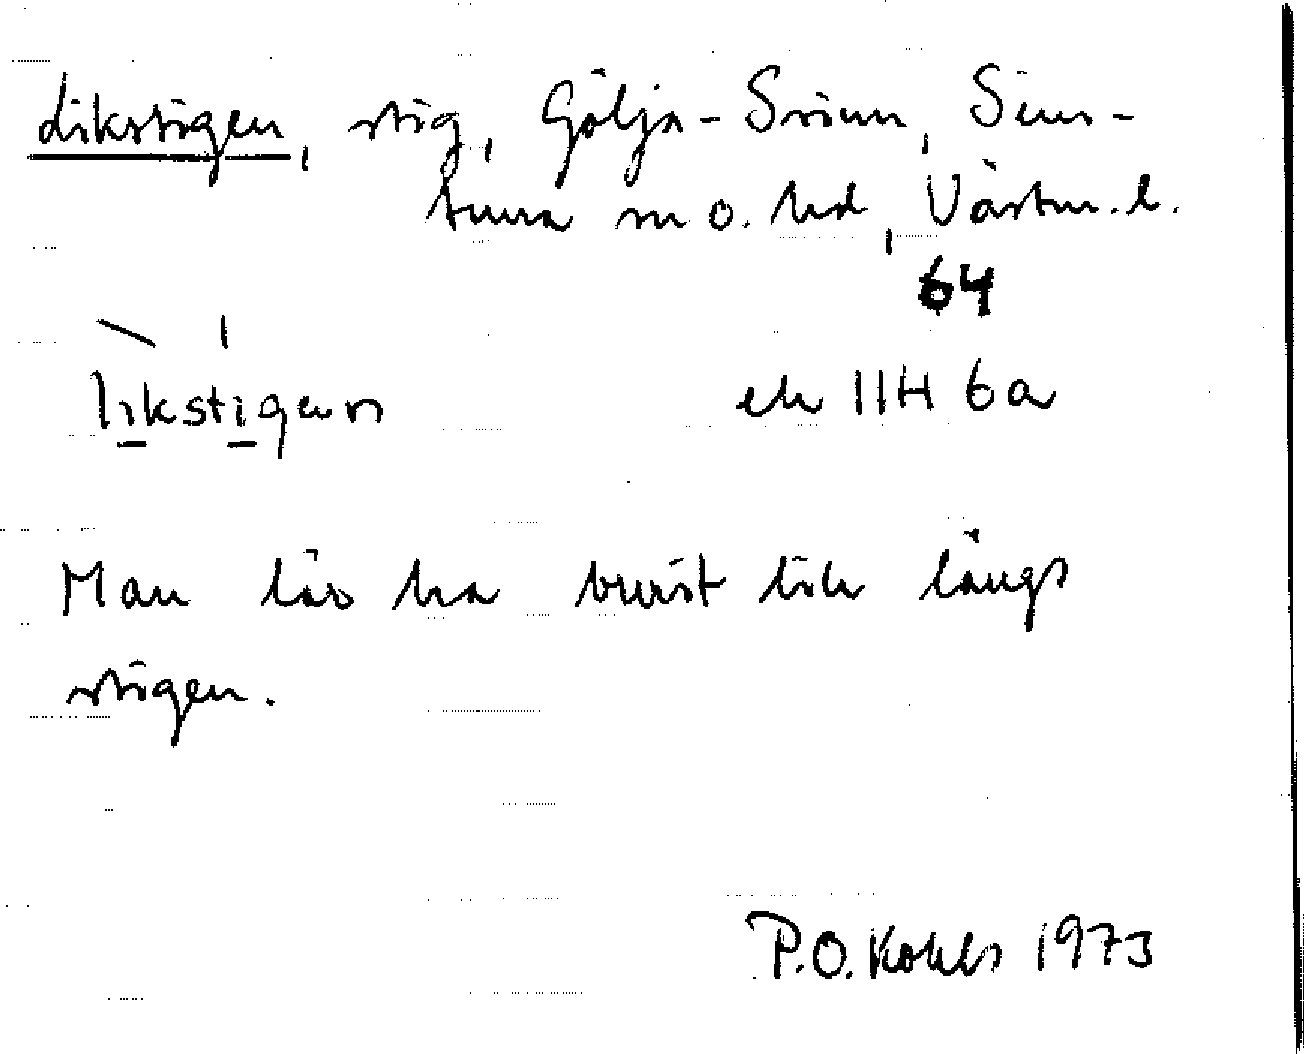 Likstigen, stig, Gölja-Svinn, Sim-
tuna m o. hd, Västm.l.
64
likstigen ek 11H 6a
Man lär ha burit lik längs
stigen.
P.O. Kohls 1973